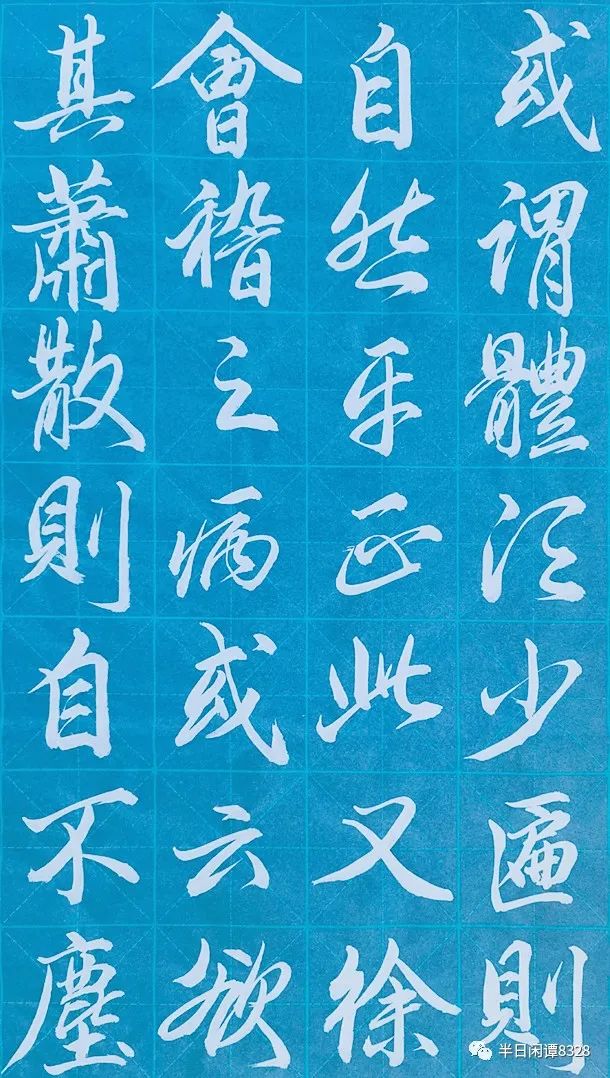 或謂體須少匾則
自然平正此又徐
會稽之病或云欲
其蕭散則自不塵
半日闲谭8328